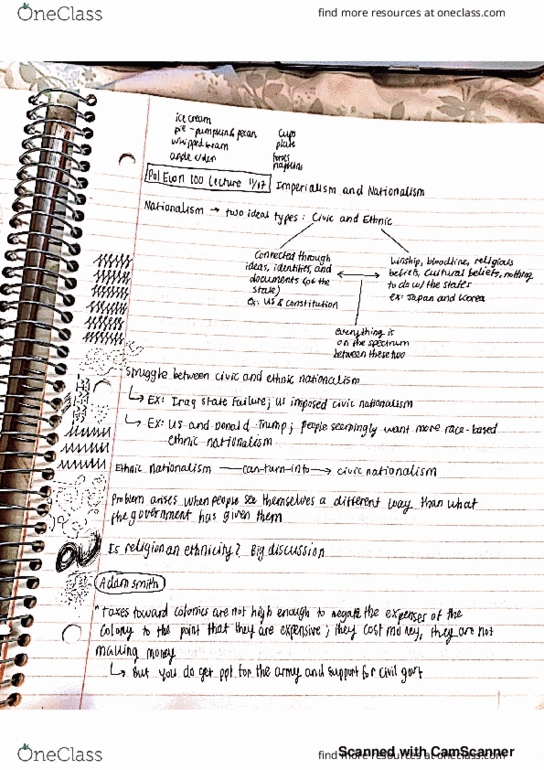 OneClass
find more resources at oneclass.com
ice cream
pie - pumpkin & pecan
whipped cream
apple cider
cups
plate
forks
napkins
Pol Econ 100 Lecture 11/17 Imperialism and Nationalism
Nationalism → two ideal types: Civic and Ethnic
Connected through
ideas, identities, and
documents (of the
state)
ex: US & constitution
kinship, bloodline, religious
beliefs, cultural beliefs, nothing
to do w/ the states
ex: Japan and Korea
everything is
on the spectrum
between these two
Struggle between civic and ethnic nationalism
↳ Ex: Iraq State Failure; US imposed civic nationalism
↳ Ex: US and Donald Trump; people seemingly want more race-based
ethnic nationalism
Ethnic nationalism — can turn into → civic nationalism
Problem arises when people see themselves a different way than what
the government has given them
Is religion an ethnicity? Big discussion
Adam Smith
"Taxes toward colonies are not high enough to negate the expenses of the
colony to the point that they are expensive; they cost money, they are not
making money
↳ But you do get ppl for the army and support for civil govt
OneClass
find more resources at oneclass.com
Scanned with CamScanner